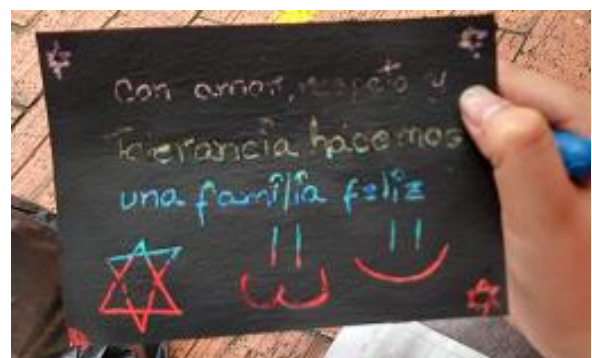 Con amor, respeto y
Tolerancia hacemos
una familia feliz